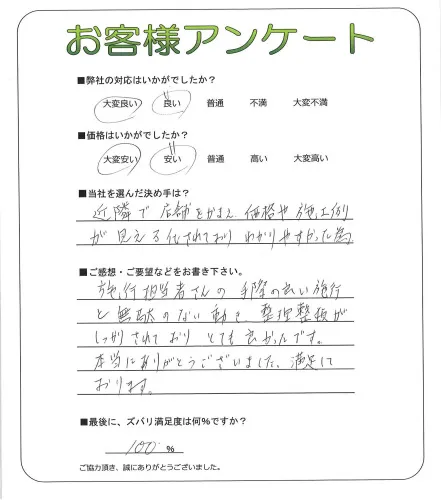 お客様アンケート
■弊社の対応はいかがでしたか？
大変良い 良い 普通 不満 大変不満
■価格はいかがでしたか？
大変安い 安い 普通 高い 大変高い
■当社を選んだ決め手は？
近隣で店舗をかまえ 価格や施工例
が見える化されており わかりやすかった為
■ご感想・ご要望などをお書き下さい。
施行担当者さんの手際の良い施行
と無駄のない動き、整理整頓が
しっかりされており とても良かったです。
本当にありがとうございました、満足して
おります。
■最後に、ズバリ満足度は何％ですか？
100 ％
ご協力頂き、誠にありがとうございました。